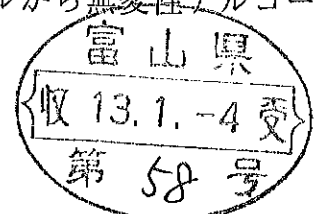 ルから無変性アルコー
富山県
収 13.1.-4 受
第 58 号